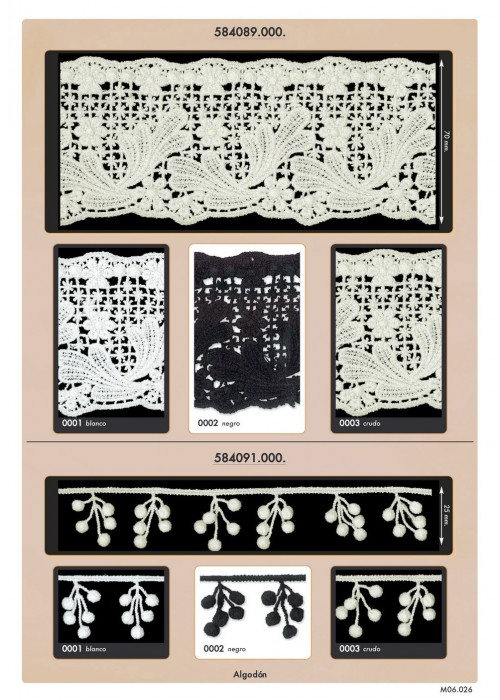 584089.000.
70 mm.
0001 blanco
0002 negro
0003 crudo
584091.000.
25 mm.
0001 blanco
0002 negro
0003 crudo
Algodón
M06.026